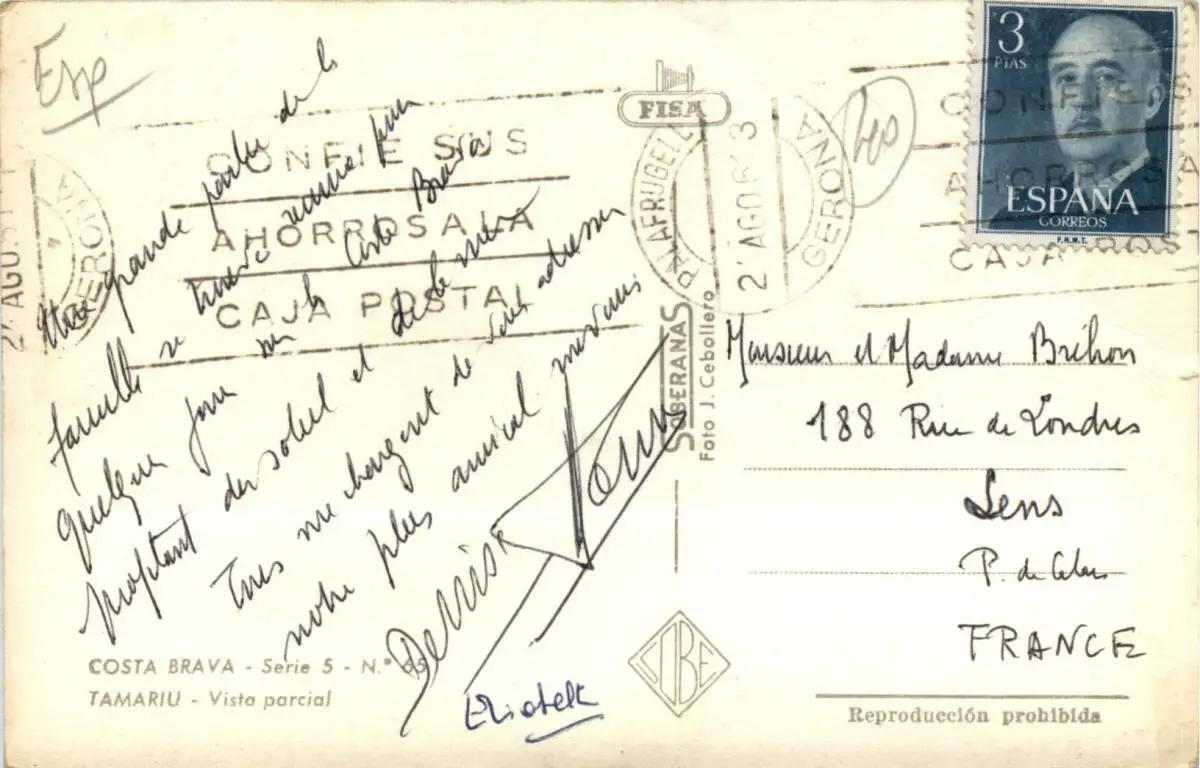 Esp
Une grande partie de la
famille se trouve réunie pour
quelques jours sur la Costa Brava
profitant du soleil et de la mer
Tous me chargent de vous adresser
notre plus amical souvenir
Denise
Elisabeth
COSTA BRAVA - Serie 5 - N.° 65
TAMARIU - Vista parcial
CONFIE SUS
AHORROS A LA
CAJA POSTAL
2 AGO. 6
GERONA
FISA
PALAFRUGELL
2 AGO 63
GERONA
SOBERANAS
Foto J. Cebollero
COBE
3
PTAS
ESPAÑA
CORREOS
F.N.M.T.
CONFIE S
AHORROS A
CAJA POS
Monsieur et Madame Bréhon
188 Rue de Londres
Lens
P. de Calais
FRANCE
Reproducción prohibida